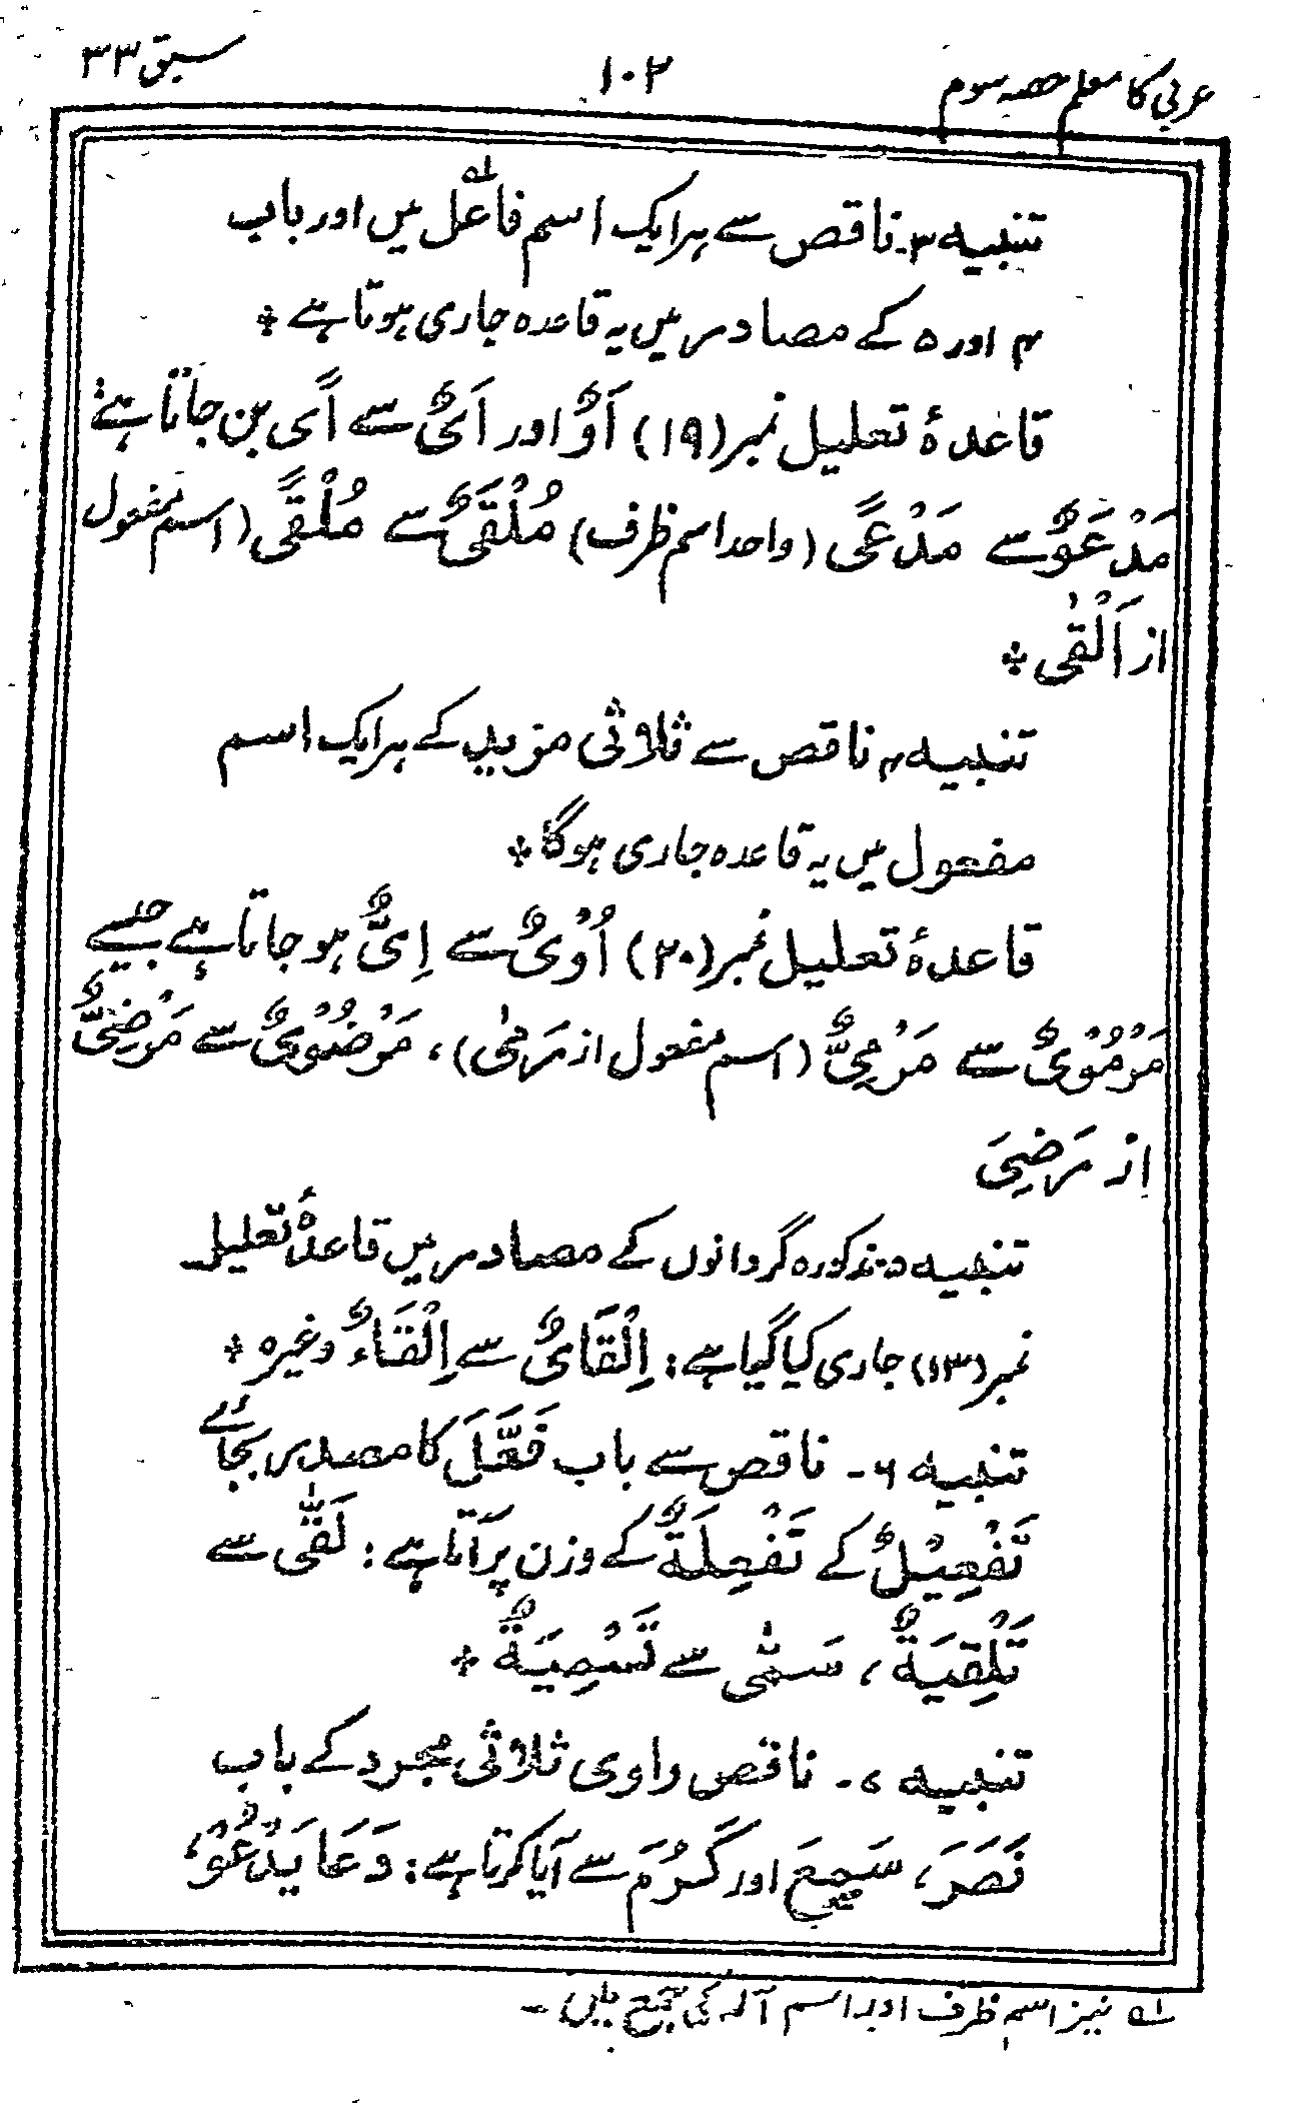 عربی کا معلم حصہ سوم ۱۰۲ سبق ۳۳
تنبیہ ۳۔ ناقص سے ہر ایک اسم فاعل میں اور باب
۴ اور ۵ کے مصادر میں یہ قاعدہ جاری ہوتا ہے ٭
قاعدۂ تعلیل نمبر (۱۹) اَوٌ اور اَیٌ سے اًی بن جاتا ہے:
مَدْعَوٌ سے مَدْعًی (واحد اسم ظرف) مُلْقَیٌ سے مُلْقًی (اسم مفعول
از اَلْقٰی ٭
تنبیہ ۴ ناقص سے ثلاثی مزید کے ہر ایک اسم
مفعول میں یہ قاعدہ جاری ہوگا ٭
قاعدۂ تعلیل نمبر (۲۰) اُوْیٌ سے اِیٌّ ہو جاتا ہے جیسے
مَرْمُوْیٌ سے مَرْمِیٌّ (اسم مفعول از رَمٰی)، مَرْضُوْیٌ سے مَرْضِیٌّ
از رَضِیَ
تنبیہ ۵۔ مذکورہ گردانوں کے مصادر میں قاعدۂ تعلیل
نمبر (۱۳) جاری کیا گیا ہے: اِلْقَایٌ سے اِلْقَاءٌ وغیرہ ٭
تنبیہ ۶۔ ناقص سے باب فَعَّلَ کا مصدر بجائے
تَفْعِیْلٌ کے تَفْعِلَةٌ کے وزن پر آتا ہے: لَقّٰی سے
تَلْقِیَةٌ، سَمّٰی سے تَسْمِیَةٌ ٭
تنبیہ ۷۔ ناقص واوی ثلاثی مجرد کے باب
نَصَرَ، سَمِعَ اور کَرُمَ سے آیا کرتا ہے: دَعَا یَدْعُوْ،
لہ نیز اسم ظرف اور اسم آلہ کی جمع میں۔